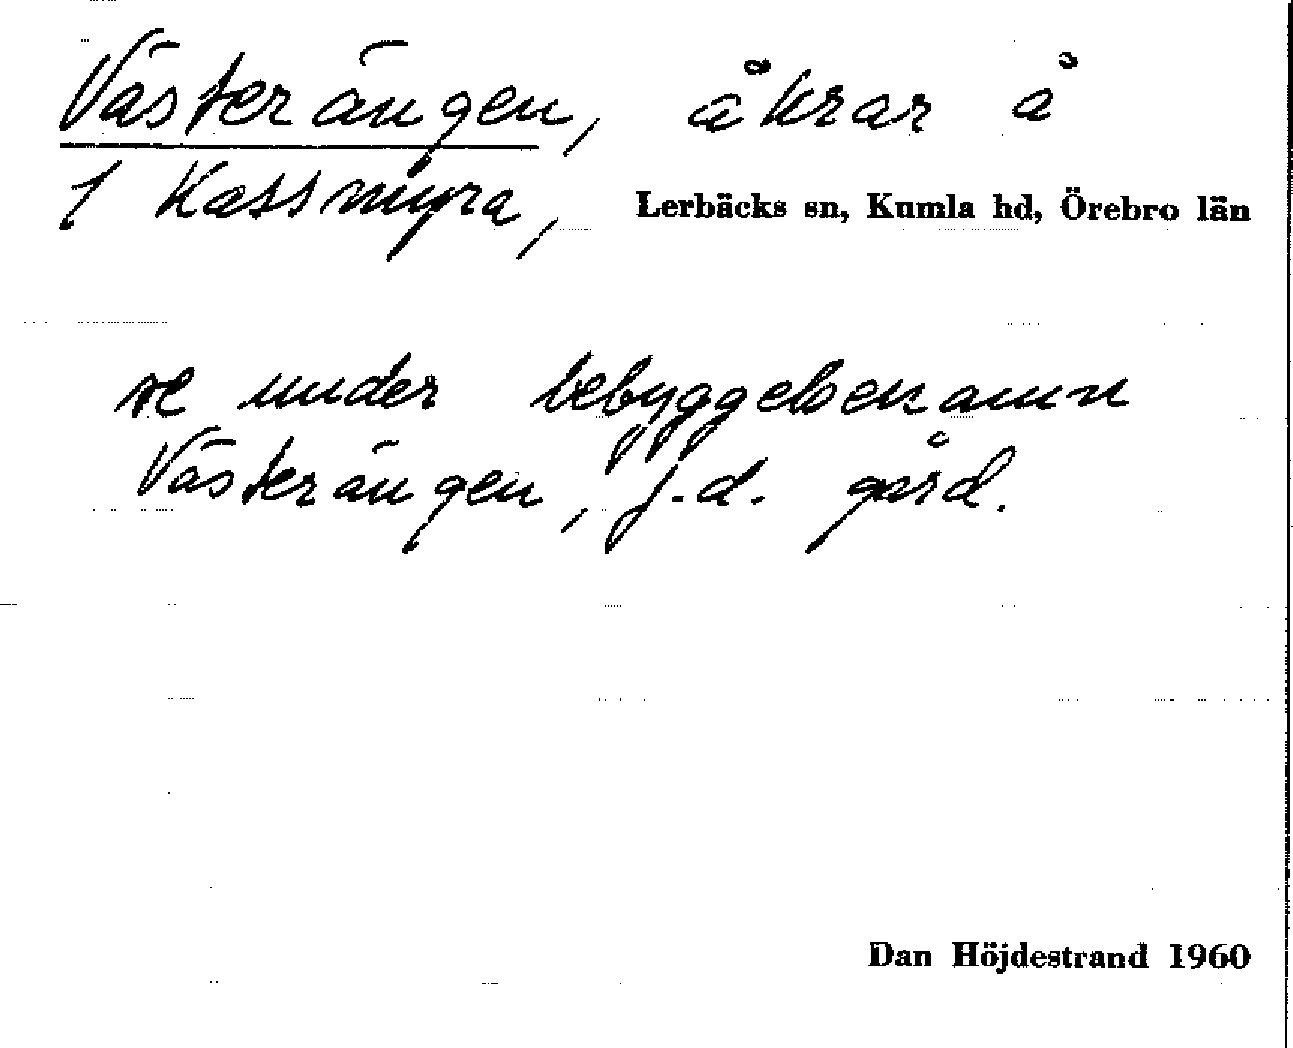 Västerängen, åkrar å
1 Kassmyra, Lerbäcks sn, Kumla hd, Örebro län
se under bebyggelsenamn
Västerängen, f.d. gård.
Dan Höjdestrand 1960